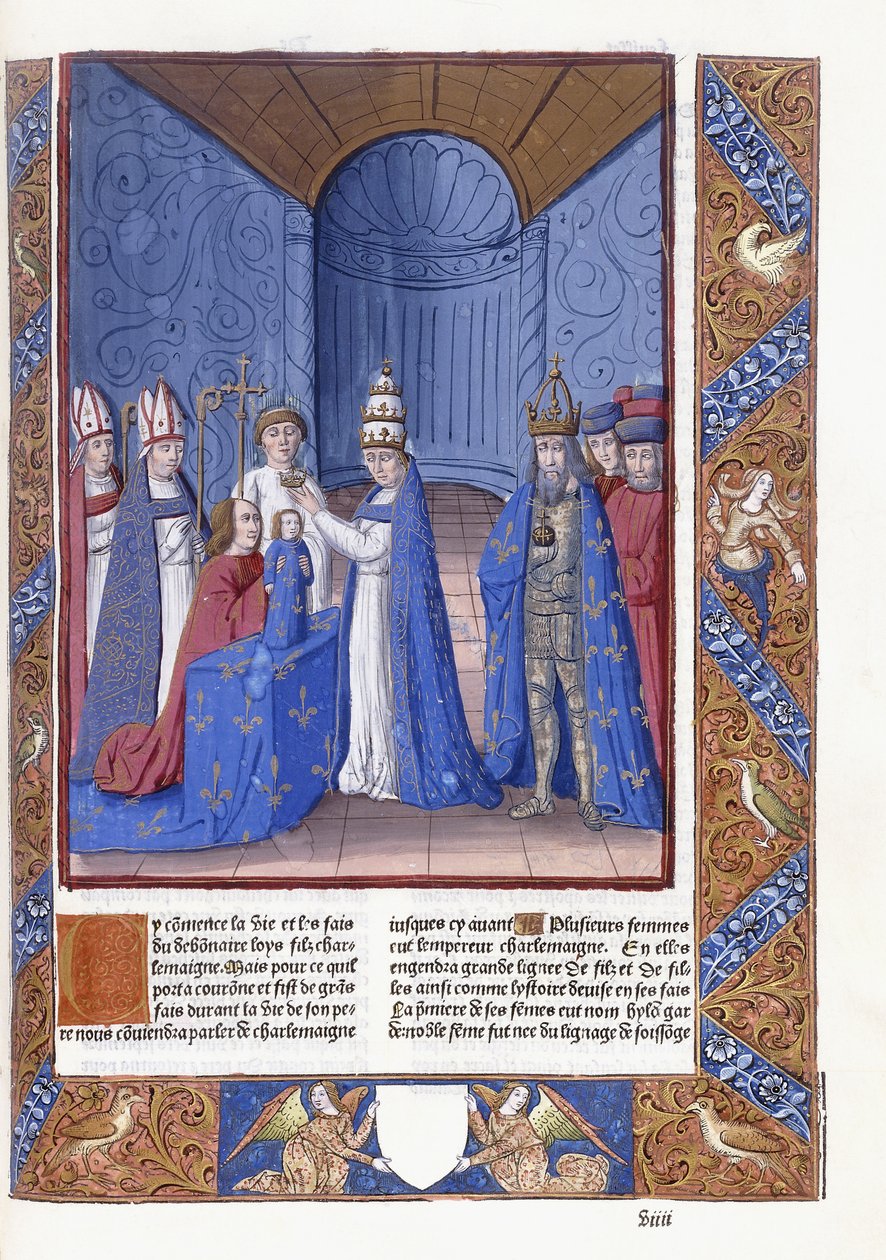 Cy cōmence la vie et les fais
du debōnaire loys filz char-
lemaigne. Mais pour ce quil
porta courōne et fist de grās
fais durant la vie de son pe-
re nous cōuiendra parler de charlemaigne
iusques cy auant Plusieurs femmes
eut lempereur charlemaigne. En elles
engendra grande lignee de filz et de fil-
les ainsi comme lystoire deuise en ses fais
La p̄miere de ses fēmes eut nom hyldegar
de: noble fēme fut nee du lignage de soissōge
viiii